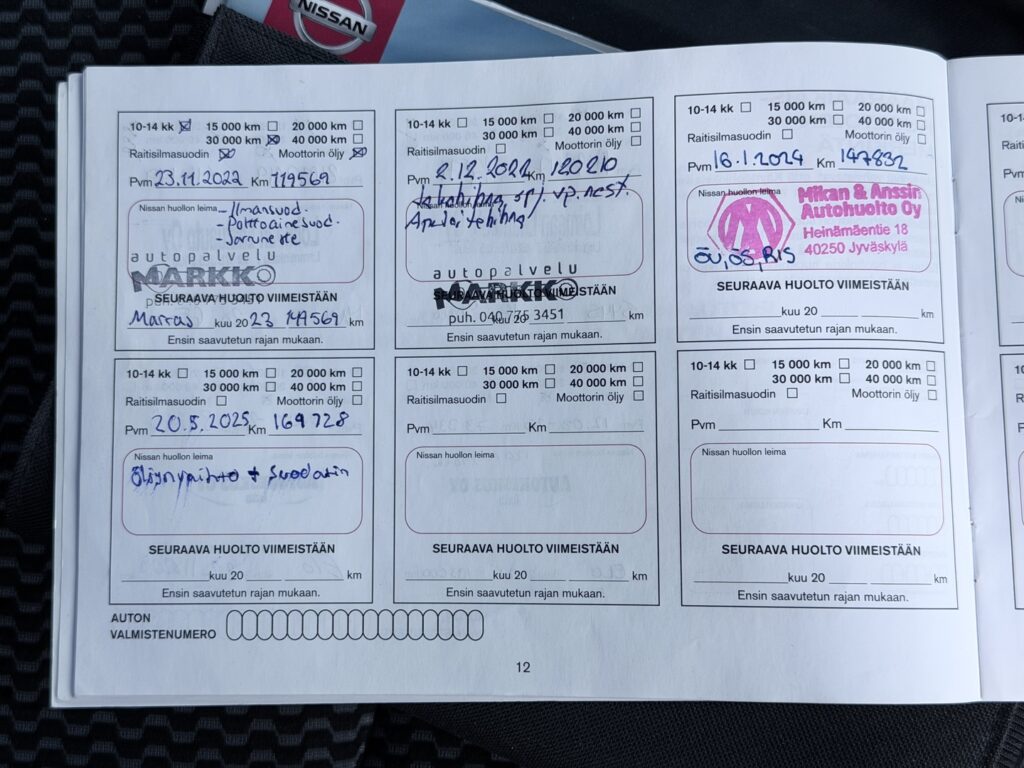 NISSAN
10-14 kk ☒ 15 000 km ☐ 20 000 km ☐
30 000 km ☒ 40 000 km ☐
Raitisilmasuodin ☒ Moottorin öljy ☒
Pvm 23.11.2022 Km 119569
Nissan huollon leima - Ilmansuod.
- Polttoainesuod.
- Jarruneste
autopalvelu
MARKKO
SEURAAVA HUOLTO VIIMEISTÄÄN
Marras kuu 20 23 149569 km
Ensin saavutetun rajan mukaan.
10-14 kk ☐ 15 000 km ☐ 20 000 km ☐
30 000 km ☐ 40 000 km ☐
Raitisilmasuodin ☐ Moottorin öljy ☐
Pvm 2.12.2022 Km 120210
Jakohihna, vp. nest.
Nissan huollon leima
Apulaitehihna
autopalvelu
MARKKO
SEURAAVA HUOLTO VIIMEISTÄÄN
puh. 040 775 3451
kuu 20 km
Ensin saavutetun rajan mukaan.
10-14 kk ☐ 15 000 km ☐ 20 000 km ☐
30 000 km ☐ 40 000 km ☐
Raitisilmasuodin ☐ Moottorin öljy ☐
Pvm 16.1.2024 Km 147832
Nissan huollon leima
Mikan & Anssin
Autohuolto Oy
Heinämäentie 18
40250 Jyväskylä
ÖV, ÖS, RIS
SEURAAVA HUOLTO VIIMEISTÄÄN
kuu 20 km
Ensin saavutetun rajan mukaan.
10-14 kk ☐ 15 000 km ☐ 20 000 km ☐
30 000 km ☐ 40 000 km ☐
Raitisilmasuodin ☐ Moottorin öljy ☐
Pvm 20.5.2025 Km 169728
Nissan huollon leima
+ Suodatin
SEURAAVA HUOLTO VIIMEISTÄÄN
kuu 20 km
Ensin saavutetun rajan mukaan.
10-14 kk ☐ 15 000 km ☐ 20 000 km ☐
30 000 km ☐ 40 000 km ☐
Raitisilmasuodin ☐ Moottorin öljy ☐
Pvm Km
Nissan huollon leima
SEURAAVA HUOLTO VIIMEISTÄÄN
kuu 20 km
Ensin saavutetun rajan mukaan.
10-14 kk ☐ 15 000 km ☐ 20 000 km ☐
30 000 km ☐ 40 000 km ☐
Raitisilmasuodin ☐ Moottorin öljy ☐
Pvm Km
Nissan huollon leima
SEURAAVA HUOLTO VIIMEISTÄÄN
kuu 20 km
Ensin saavutetun rajan mukaan.
AUTON
VALMISTENUMERO
12